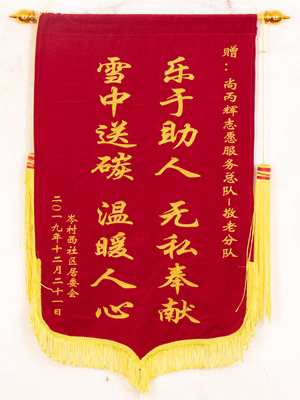 赠：尚丙辉志愿服务总队-敬老分队
乐于助人 无私奉献
雪中送碳 温暖人心
岑村西社区居委会
二〇一九年十二月二十一日